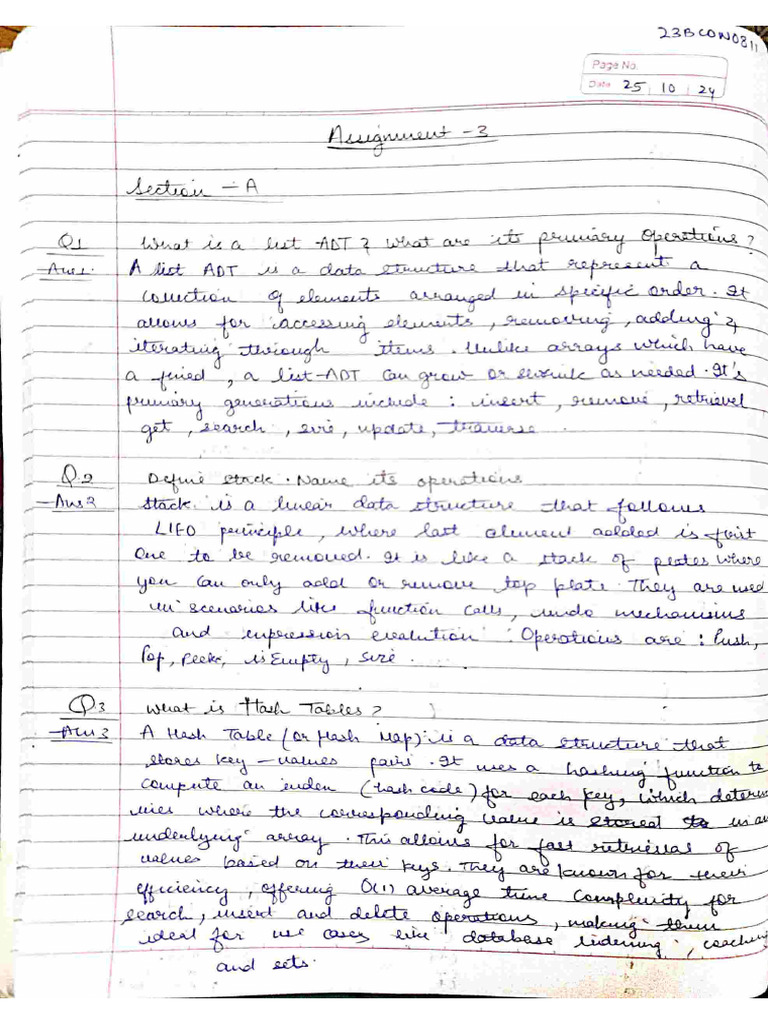 23BCON0811
Page No.
Date 25 | 10 | 24
Assignment - 3
Section - A
Q1 What is a list ADT & what are its primary operations?
Ans1. A list ADT is a data structure that represent a
collection of elements arranged in specific order. It
allows for accessing elements, removing, adding &
iterating through items. Unlike arrays which have
a fixed, a list ADT can grow or shrink as needed. It's
primary generations include : insert, remove, retrieval
get, search, size, update, traverse.
Q.2 Define stack. Name its operations
Ans2 Stack is a linear data structure that follows
LIFO principle, where last element added is first
one to be removed. It is like a stack of plates where
you can only add or remove top plate. They are used
in scenarios like function calls, undo mechanisms
and expression evalution. Operations are : Push,
Pop, Peek, isEmpty, Size.
Q3 What is Hash Tables?
Ans3 A Hash Table (or Hash Map) is a data structure that
stores key - values pairs. It uses a hashing function to
compute an index (hash code) for each key, which determ
ines where the corresponding value is stored in an
underlying array. This allows for fast retrievals of
values based on their keys. They are known for their
efficiency, offering O(1) average time complexity for
search, insert and delete operations, making them
ideal for use cases like database indexing, coaching
and sets.